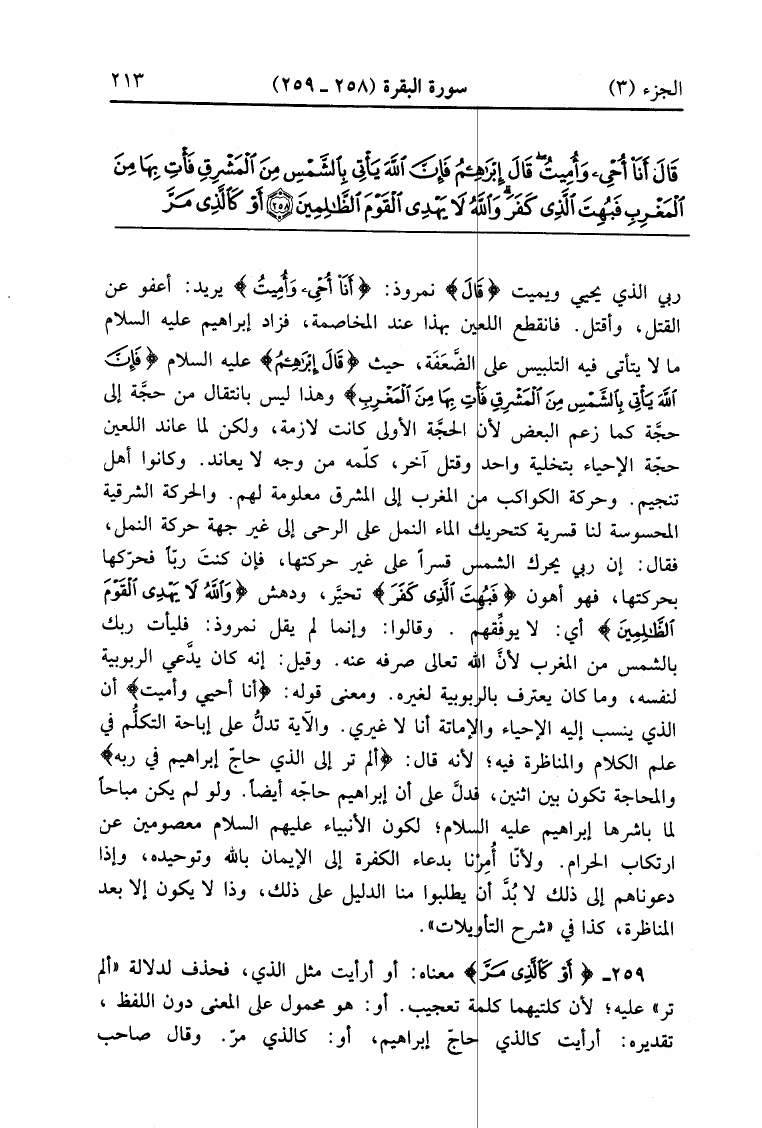 الجزء (٣) سورة البقرة (٢٥٨ - ٢٥٩) ٢١٣
قَالَ أَنَا۠ أُحْىِۦ وَأُمِيتُ ۖ قَالَ إِبْرَٰهِـۧمُ فَإِنَّ ٱللَّهَ يَأْتِى بِٱلشَّمْسِ مِنَ ٱلْمَشْرِقِ فَأْتِ بِهَا مِنَ
ٱلْمَغْرِبِ فَبُهِتَ ٱلَّذِى كَفَرَ ۗ وَٱللَّهُ لَا يَهْدِى ٱلْقَوْمَ ٱلظَّـٰلِمِينَ ﴿٢٥٨﴾ أَوْ كَٱلَّذِى مَرَّ
ربي الذي يحيي ويميت ﴿قَالَ﴾ نمروذ: ﴿أَنَا۠ أُحْىِۦ وَأُمِيتُ﴾ يريد: أعفو عن
القتل، وأقتل. فانقطع اللعين بهذا عند المخاصمة، فزاد إبراهيم عليه السلام
ما لا يتأتى فيه التلبيس على الضَّعَفَة، حيث ﴿قَالَ إِبْرَٰهِـۧمُ﴾ عليه السلام ﴿فَإِنَّ
ٱللَّهَ يَأْتِى بِٱلشَّمْسِ مِنَ ٱلْمَشْرِقِ فَأْتِ بِهَا مِنَ ٱلْمَغْرِبِ﴾ وهذا ليس بانتقال من حجَّة إلى
حجَّة كما زعم البعض لأن الحجَّة الأولى كانت لازمة، ولكن لما عاند اللعين
حجّة الإحياء بتخلية واحد وقتل آخر، كلّمه من وجه لا يعاند. وكانوا أهل
تنجيم. وحركة الكواكب من المغرب إلى المشرق معلومة لهم. والحركة الشرقية
المحسوسة لنا قسرية كتحريك الماء النمل على الرحى إلى غير جهة حركة النمل،
فقال: إن ربي يحرك الشمس قسراً على غير حركتها، فإن كنتَ ربّاً فحرّكها
بحركتها، فهو أهون ﴿فَبُهِتَ ٱلَّذِى كَفَرَ﴾ تحيَّر، ودهش ﴿وَٱللَّهُ لَا يَهْدِى ٱلْقَوْمَ
ٱلظَّـٰلِمِينَ﴾ أي: لا يوفِّقهم . وقالوا: وإنما لم يقل نمروذ: فليأت ربك
بالشمس من المغرب لأنَّ الله تعالى صرفه عنه. وقيل: إنه كان يدَّعي الربوبية
لنفسه، وما كان يعترف بالربوبية لغيره. ومعنى قوله: ﴿أنا أحيي وأميت﴾ أن
الذي ينسب إليه الإحياء والإماتة أنا لا غيري. والآية تدلُّ على إباحة التكلُّم في
علم الكلام والمناظرة فيه؛ لأنه قال: ﴿ألم تر إلى الذي حاجّ إبراهيم في ربه﴾
والمحاجة تكون بين اثنين، فدلَّ على أن إبراهيم حاجّه أيضاً. ولو لم يكن مباحاً
لما باشرها إبراهيم عليه السلام؛ لكون الأنبياء عليهم السلام معصومين عن
ارتكاب الحرام. ولأنّا أُمِرْنا بدعاء الكفرة إلى الإيمان بالله وتوحيده، وإذا
دعوناهم إلى ذلك لا بُدَّ أن يطلبوا منا الدليل على ذلك، وذا لا يكون إلا بعد
المناظرة، كذا في «شرح التأويلات».
٢٥٩ـ ﴿أَوْ كَٱلَّذِى مَرَّ﴾ معناه: أو أرأيت مثل الذي، فحذف لدلالة «ألم
تر» عليه؛ لأن كلتيهما كلمة تعجيب. أو: هو محمول على المعنى دون اللفظ ،
تقديره: أرأيت كالذي حاجّ إبراهيم، أو: كالذي مرّ. وقال صاحب